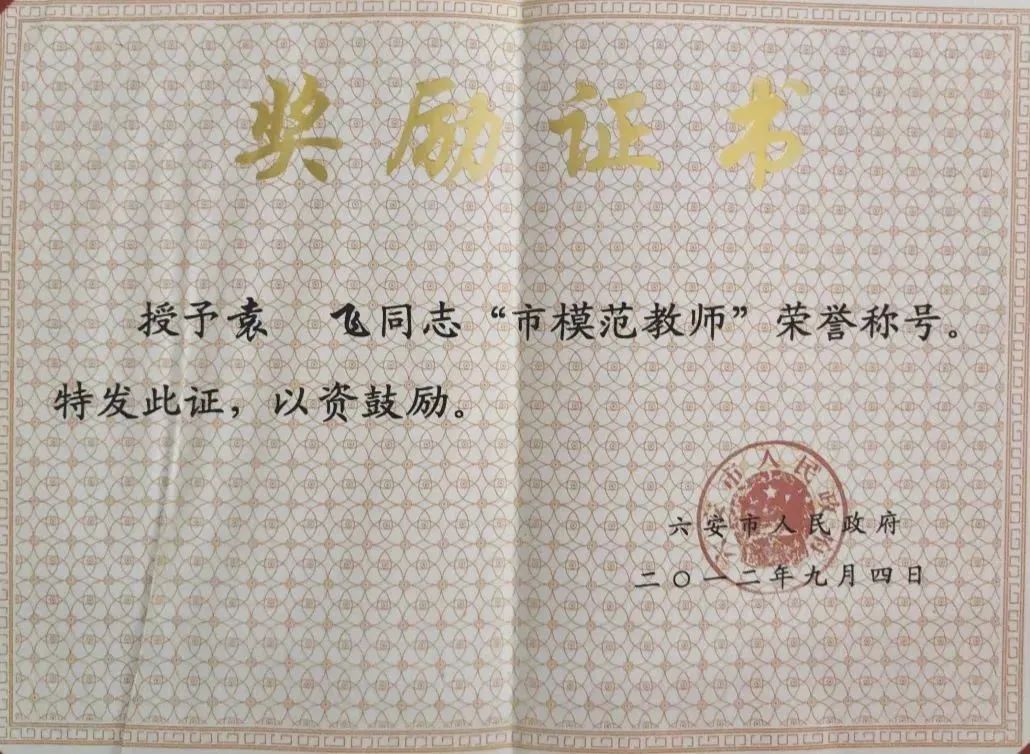 奖励证书
授予袁 飞同志“市模范教师”荣誉称号。
特发此证，以资鼓励。
六安市人民政府
二〇一二年九月四日
六安市人民政府